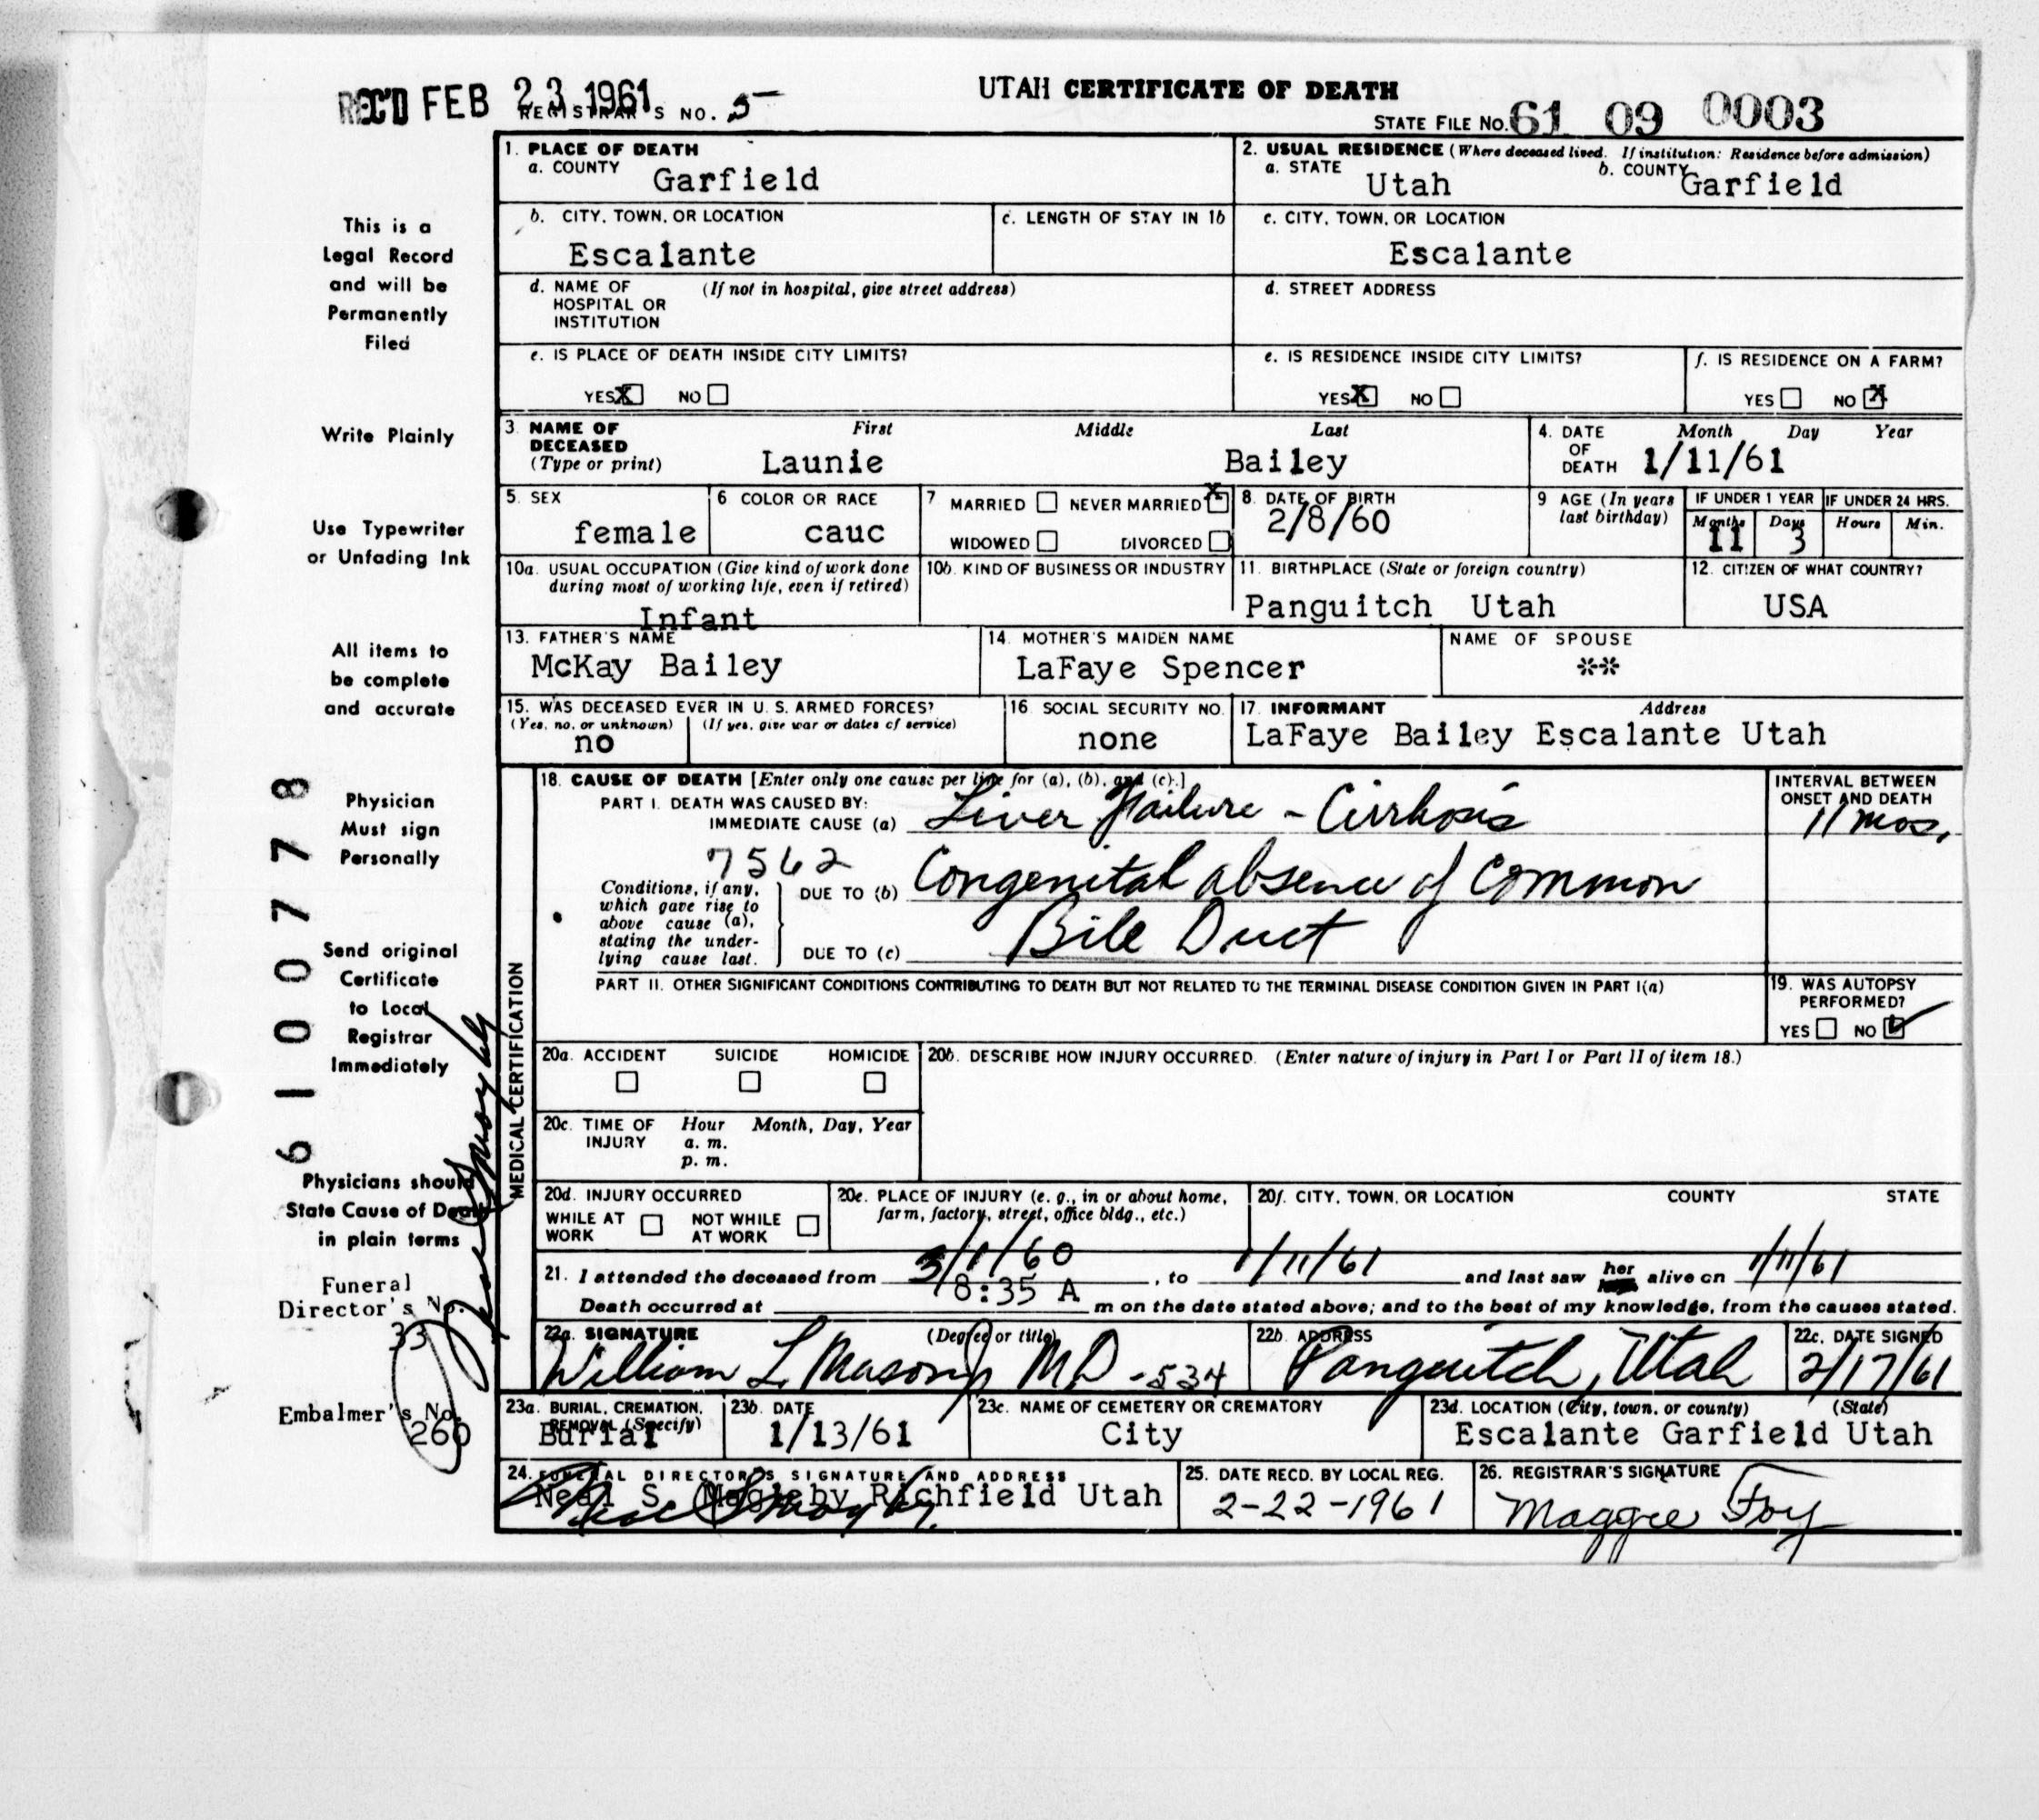 REC'D FEB 23 1961
REGISTRAR'S NO. 5
UTAH CERTIFICATE OF DEATH
STATE FILE NO. 61 09 0003
1. PLACE OF DEATH
a. COUNTY Garfield
2. USUAL RESIDENCE (Where deceased lived. If institution: Residence before admission)
a. STATE Utah b. COUNTY Garfield
b. CITY, TOWN, OR LOCATION Escalante
c. LENGTH OF STAY IN 1b
c. CITY, TOWN, OR LOCATION Escalante
d. NAME OF HOSPITAL OR INSTITUTION (If not in hospital, give street address)
d. STREET ADDRESS
e. IS PLACE OF DEATH INSIDE CITY LIMITS?
YES X NO
e. IS RESIDENCE INSIDE CITY LIMITS?
YES X NO
f. IS RESIDENCE ON A FARM?
YES NO X
3. NAME OF DECEASED (Type or print) First Middle Last
Launie Bailey
4. DATE OF DEATH Month Day Year
1/11/61
5. SEX female
6 COLOR OR RACE cauc
7 MARRIED NEVER MARRIED X
WIDOWED DIVORCED
8. DATE OF BIRTH 2/8/60
9 AGE (In years last birthday)
IF UNDER 1 YEAR Months 11 Days 3
IF UNDER 24 HRS. Hours Min.
10a. USUAL OCCUPATION (Give kind of work done during most of working life, even if retired)
Infant
10b. KIND OF BUSINESS OR INDUSTRY
11. BIRTHPLACE (State or foreign country)
Panguitch Utah
12. CITIZEN OF WHAT COUNTRY?
USA
13. FATHER'S NAME
McKay Bailey
14. MOTHER'S MAIDEN NAME
LaFaye Spencer
NAME OF SPOUSE
**
15. WAS DECEASED EVER IN U. S. ARMED FORCES?
(Yes, no, or unknown) (If yes, give war or dates of service)
no
16. SOCIAL SECURITY NO.
none
17. INFORMANT Address
LaFaye Bailey Escalante Utah
MEDICAL CERTIFICATION
18. CAUSE OF DEATH [Enter only one cause per line for (a), (b), and (c).]
PART I. DEATH WAS CAUSED BY:
IMMEDIATE CAUSE (a) Liver Failure - Cirrhosis
INTERVAL BETWEEN ONSET AND DEATH
11 mos.
7562
Conditions, if any, which gave rise to above cause (a), stating the underlying cause last.
DUE TO (b) Congenital absence of Common
DUE TO (c) Bile Duct
PART II. OTHER SIGNIFICANT CONDITIONS CONTRIBUTING TO DEATH BUT NOT RELATED TO THE TERMINAL DISEASE CONDITION GIVEN IN PART I(a)
19. WAS AUTOPSY PERFORMED?
YES NO ✓
20a. ACCIDENT SUICIDE HOMICIDE
20b. DESCRIBE HOW INJURY OCCURRED. (Enter nature of injury in Part I or Part II of item 18.)
20c. TIME OF INJURY Hour Month, Day, Year
a. m.
p. m.
20d. INJURY OCCURRED
WHILE AT WORK NOT WHILE AT WORK
20e. PLACE OF INJURY (e. g., in or about home, farm, factory, street, office bldg., etc.)
20f. CITY, TOWN, OR LOCATION COUNTY STATE
21. I attended the deceased from 3/1/60, to 1/11/61 and last saw her alive on 1/11/61
Death occurred at 8:35 A m on the date stated above; and to the best of my knowledge, from the causes stated.
22a. SIGNATURE (Degree or title)
William L Mason Jr MD - 534
22b. ADDRESS
Panguitch, Utah
22c. DATE SIGNED
2/17/61
23a. BURIAL, CREMATION, REMOVAL (Specify)
Burial
23b. DATE
1/13/61
23c. NAME OF CEMETERY OR CREMATORY
City
23d. LOCATION (City, town, or county) (State)
Escalante Garfield Utah
24. FUNERAL DIRECTOR'S SIGNATURE AND ADDRESS
Neal S. Magleby Richfield Utah
25. DATE RECD. BY LOCAL REG.
2-22-1961
26. REGISTRAR'S SIGNATURE
Maggie Foy
This is a
Legal Record
and will be
Permanently
Filed
Write Plainly
Use Typewriter
or Unfading Ink
All items to
be complete
and accurate
Physician
Must sign
Personally
Send original
Certificate
to Local
Registrar
Immediately
Physicians should
State Cause of Death
in plain terms
Funeral
Director's No.
33
Embalmer's No.
260
6100778